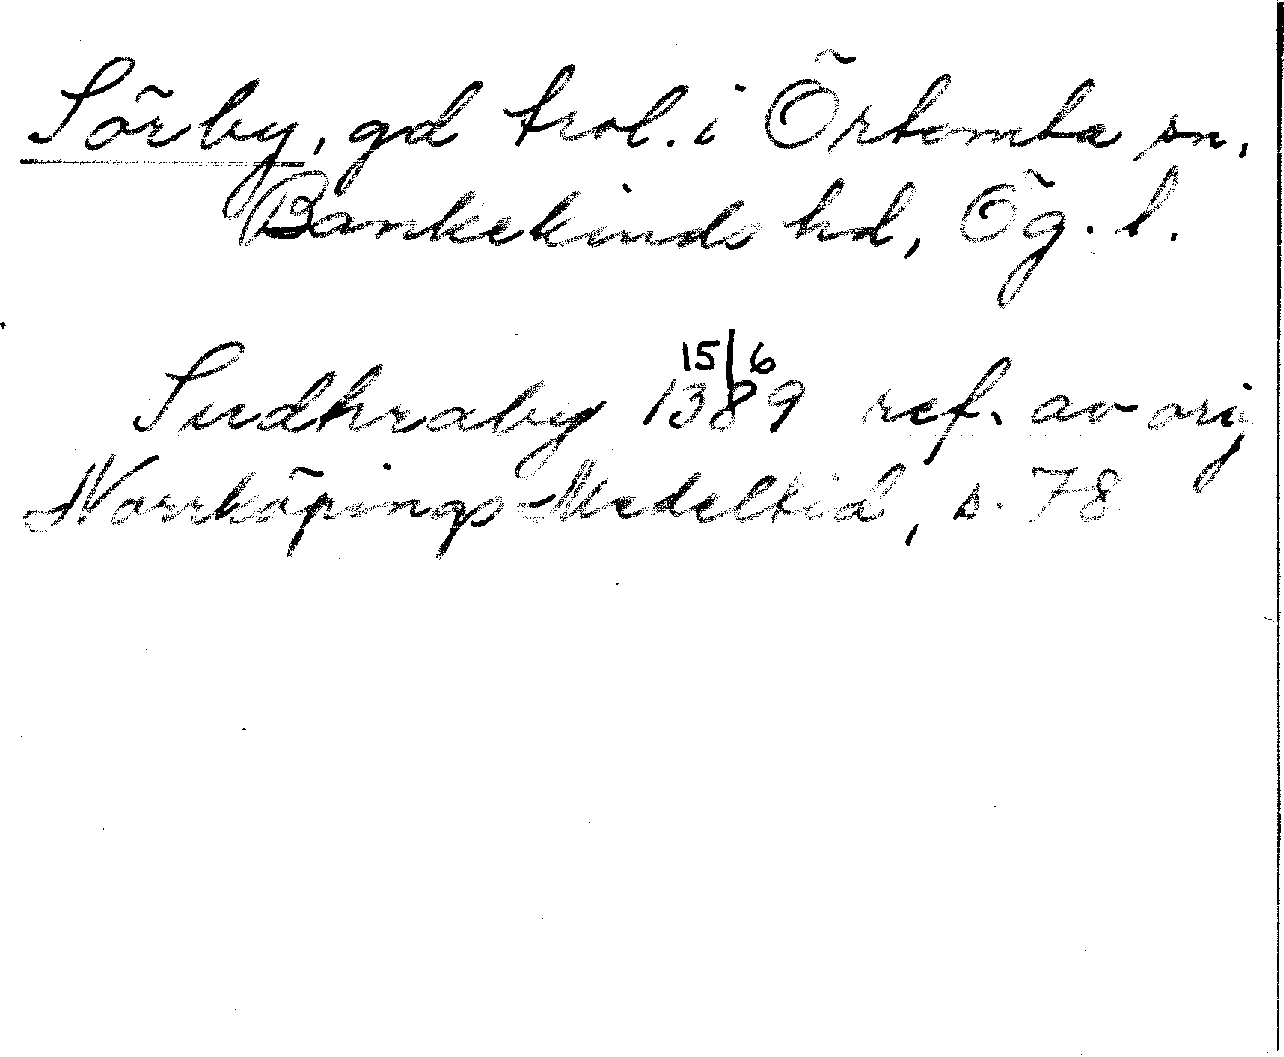 Sörby, gd trol. i Örtomta sn,
Bankekinds hd, Ög. l.
15/6
Sudhraby 1389 ref. av orig
Norrköpings Medeltid, s. 78